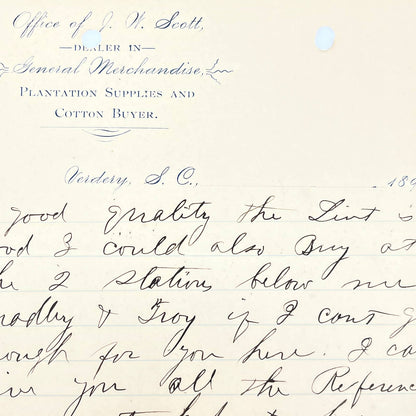 Office of J. W. Scott,
—DEALER IN—
General Merchandise,
PLANTATION SUPPLIES AND
COTTON BUYER.
Verdery, S. C., 189
good quality the Lint is
I could also Buy at
2 stations below me
& Troy if I cant
for you here. I
you all the Reference